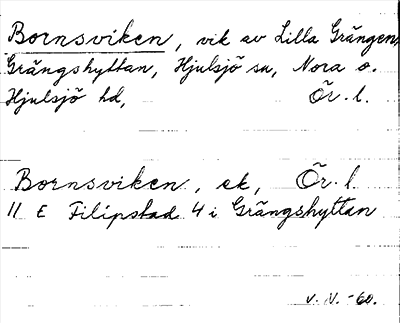 Bornsviken, vik av Lilla Grängen,
Grängshyttan, Hjulsjö sn, Nora o.
Hjulsjö hd, Ör. l.
Bornsviken, ek, Ör. l.
11 E Filipstad 4 i Grängshyttan
V. V. -60.